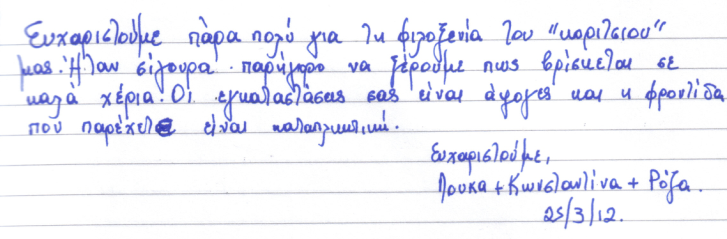 Ευχαριστούμε πάρα πολύ για τη φιλοξενία του "κοριτσιου"
μας. Ήταν σίγουρα παρήγορο να ξέρουμε πως βρίσκεται σε
καλά χέρια. Οι εγκαταστάσεις σας είναι άψογες και η φροντίδα
που παρέχετε είναι καταπληκτική.
Ευχαριστούμε,
Λουκα + Κωνσταντίνα + Ρόζα.
25/3/12.